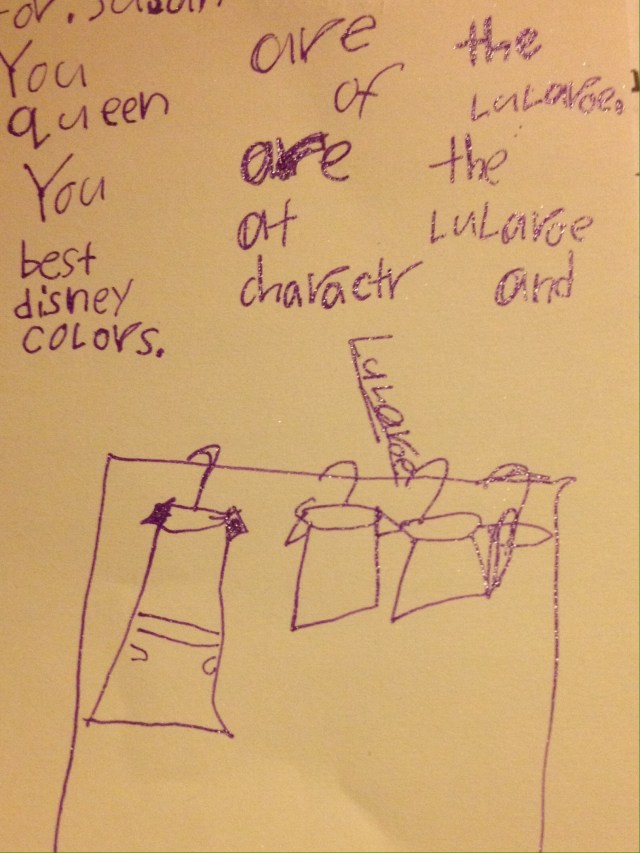 For. Susan
You are the
queen of LuLaroe.
You are the
best at LuLaroe
disney charactr and
colors.
LuLaroe